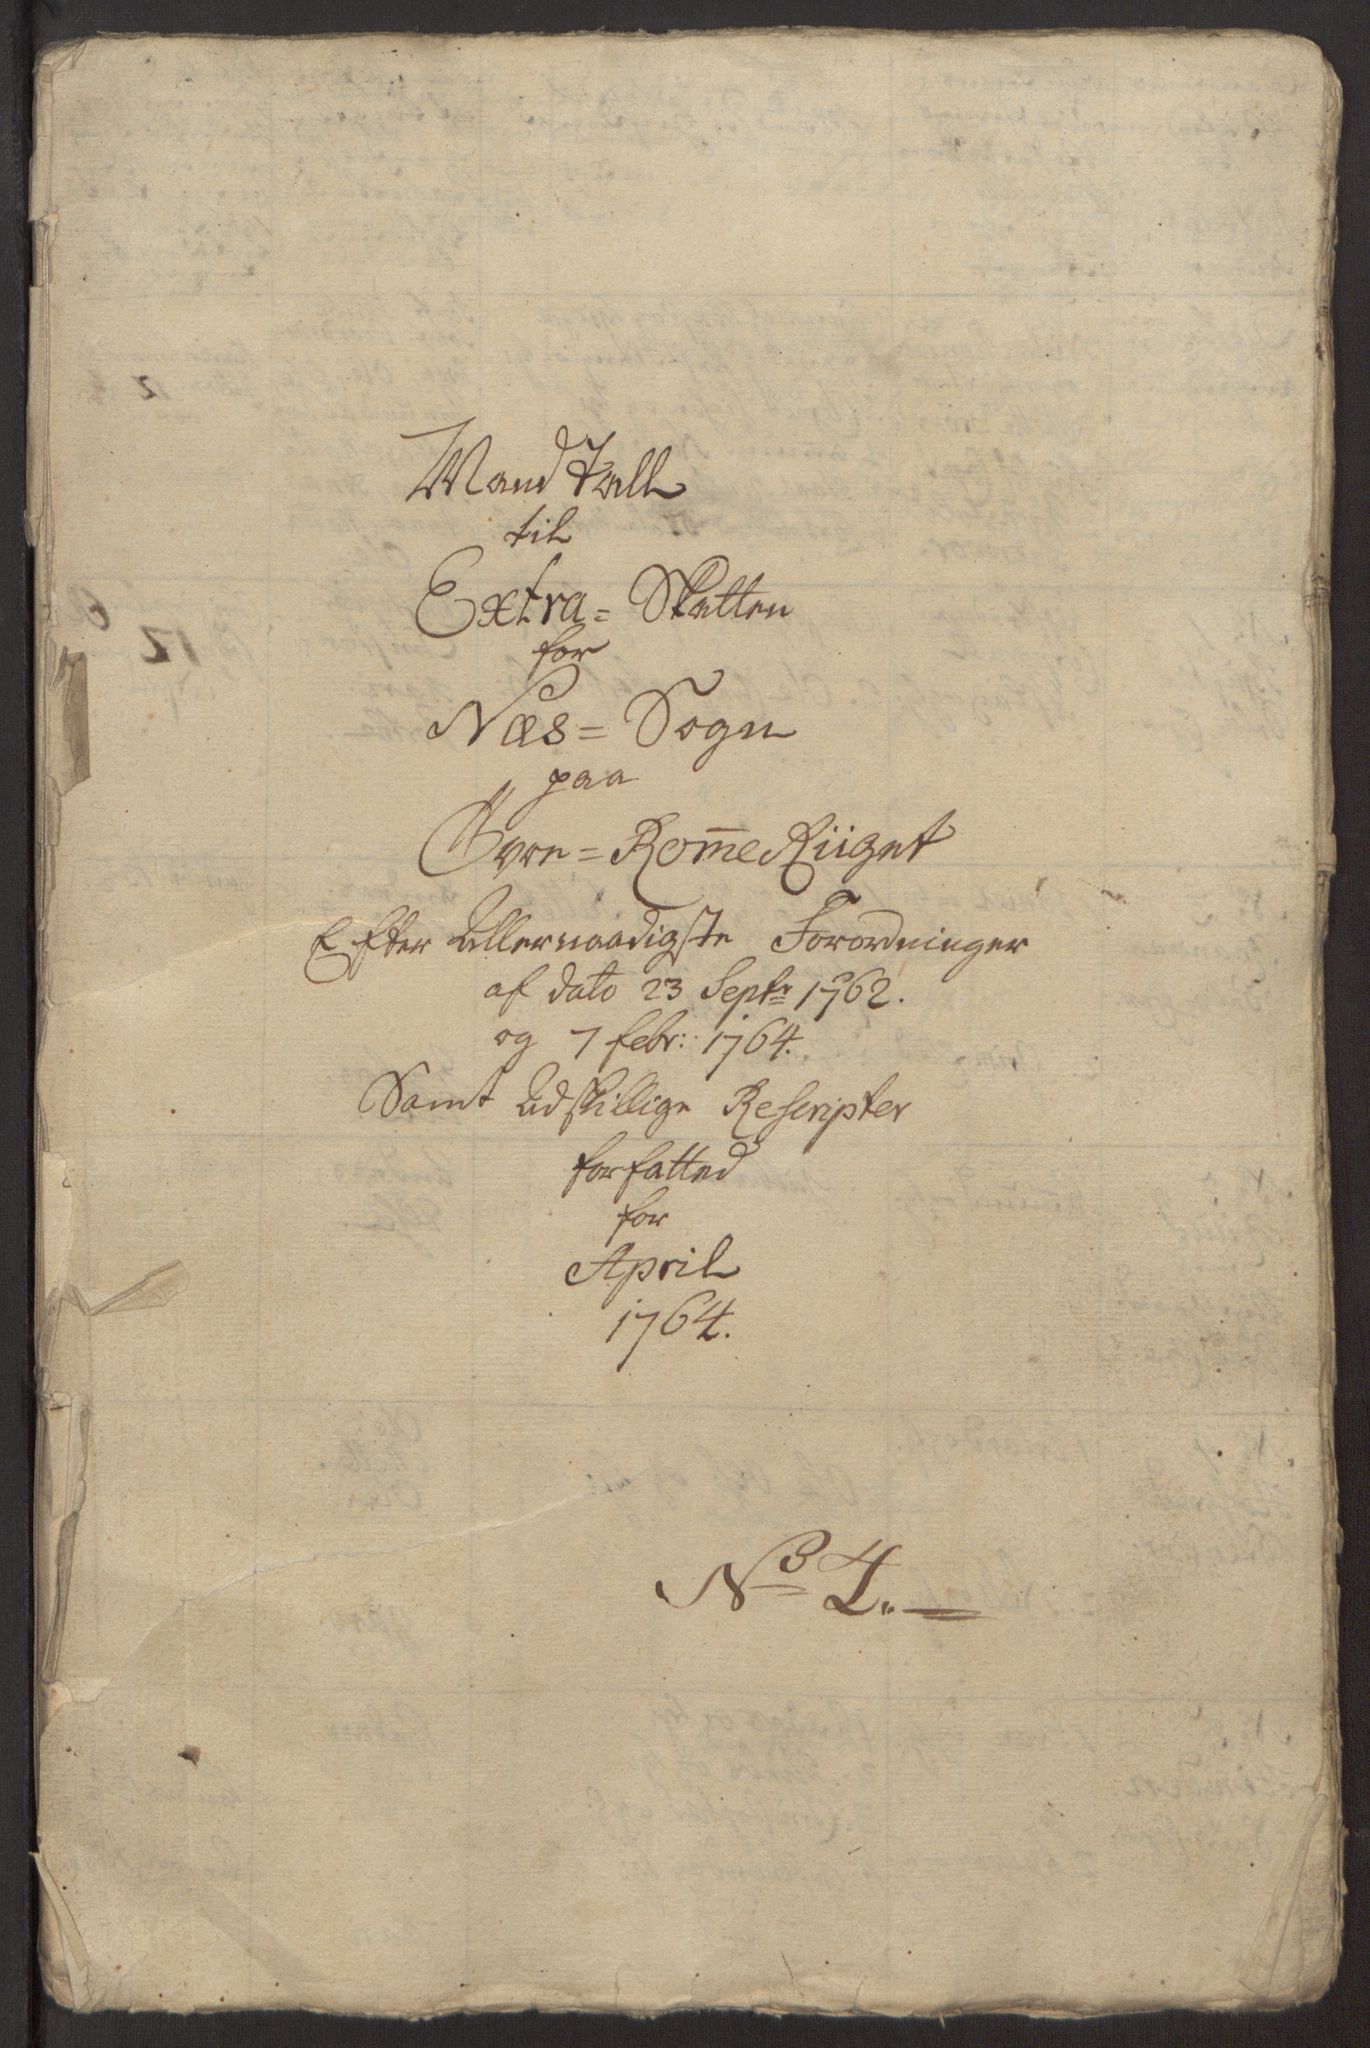 Mand Tall
til
Extra= Skatten
for
Næs= Sogn
paa
Øvre= Rom̅eRiiget
Efter Allernaadigste Forordninger
af dato 23 Septr 1762.
og 7 febr: 1764.
Samt Udskillige Rescripter
forfatted
for
April
1764.
No 4.